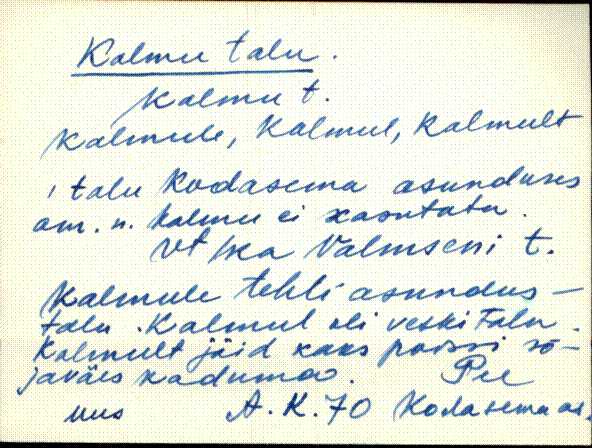 Kalmu talu.
Kalmu t.
Kalmule, Kalmul, Kalmult
, talu Kodasema asunduses
am. n. Kalmu ei kasutata.
vt ka Valmseni t.
Kalmule tehti asundus-
talu. Kalmul oli veski talu.
Kalmult jäid kaks poissi sõ-
javäes kaduma. Pee
uus A.K.70 Kodasema as.